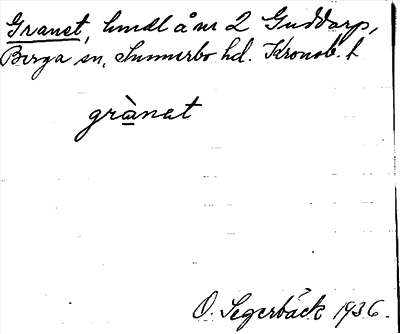 Granet, hmdl å nr 2 Guddarp,
Berga sn, Sunnerbo hd. Kronob. l
grànet
O. Segerbäck 1936.